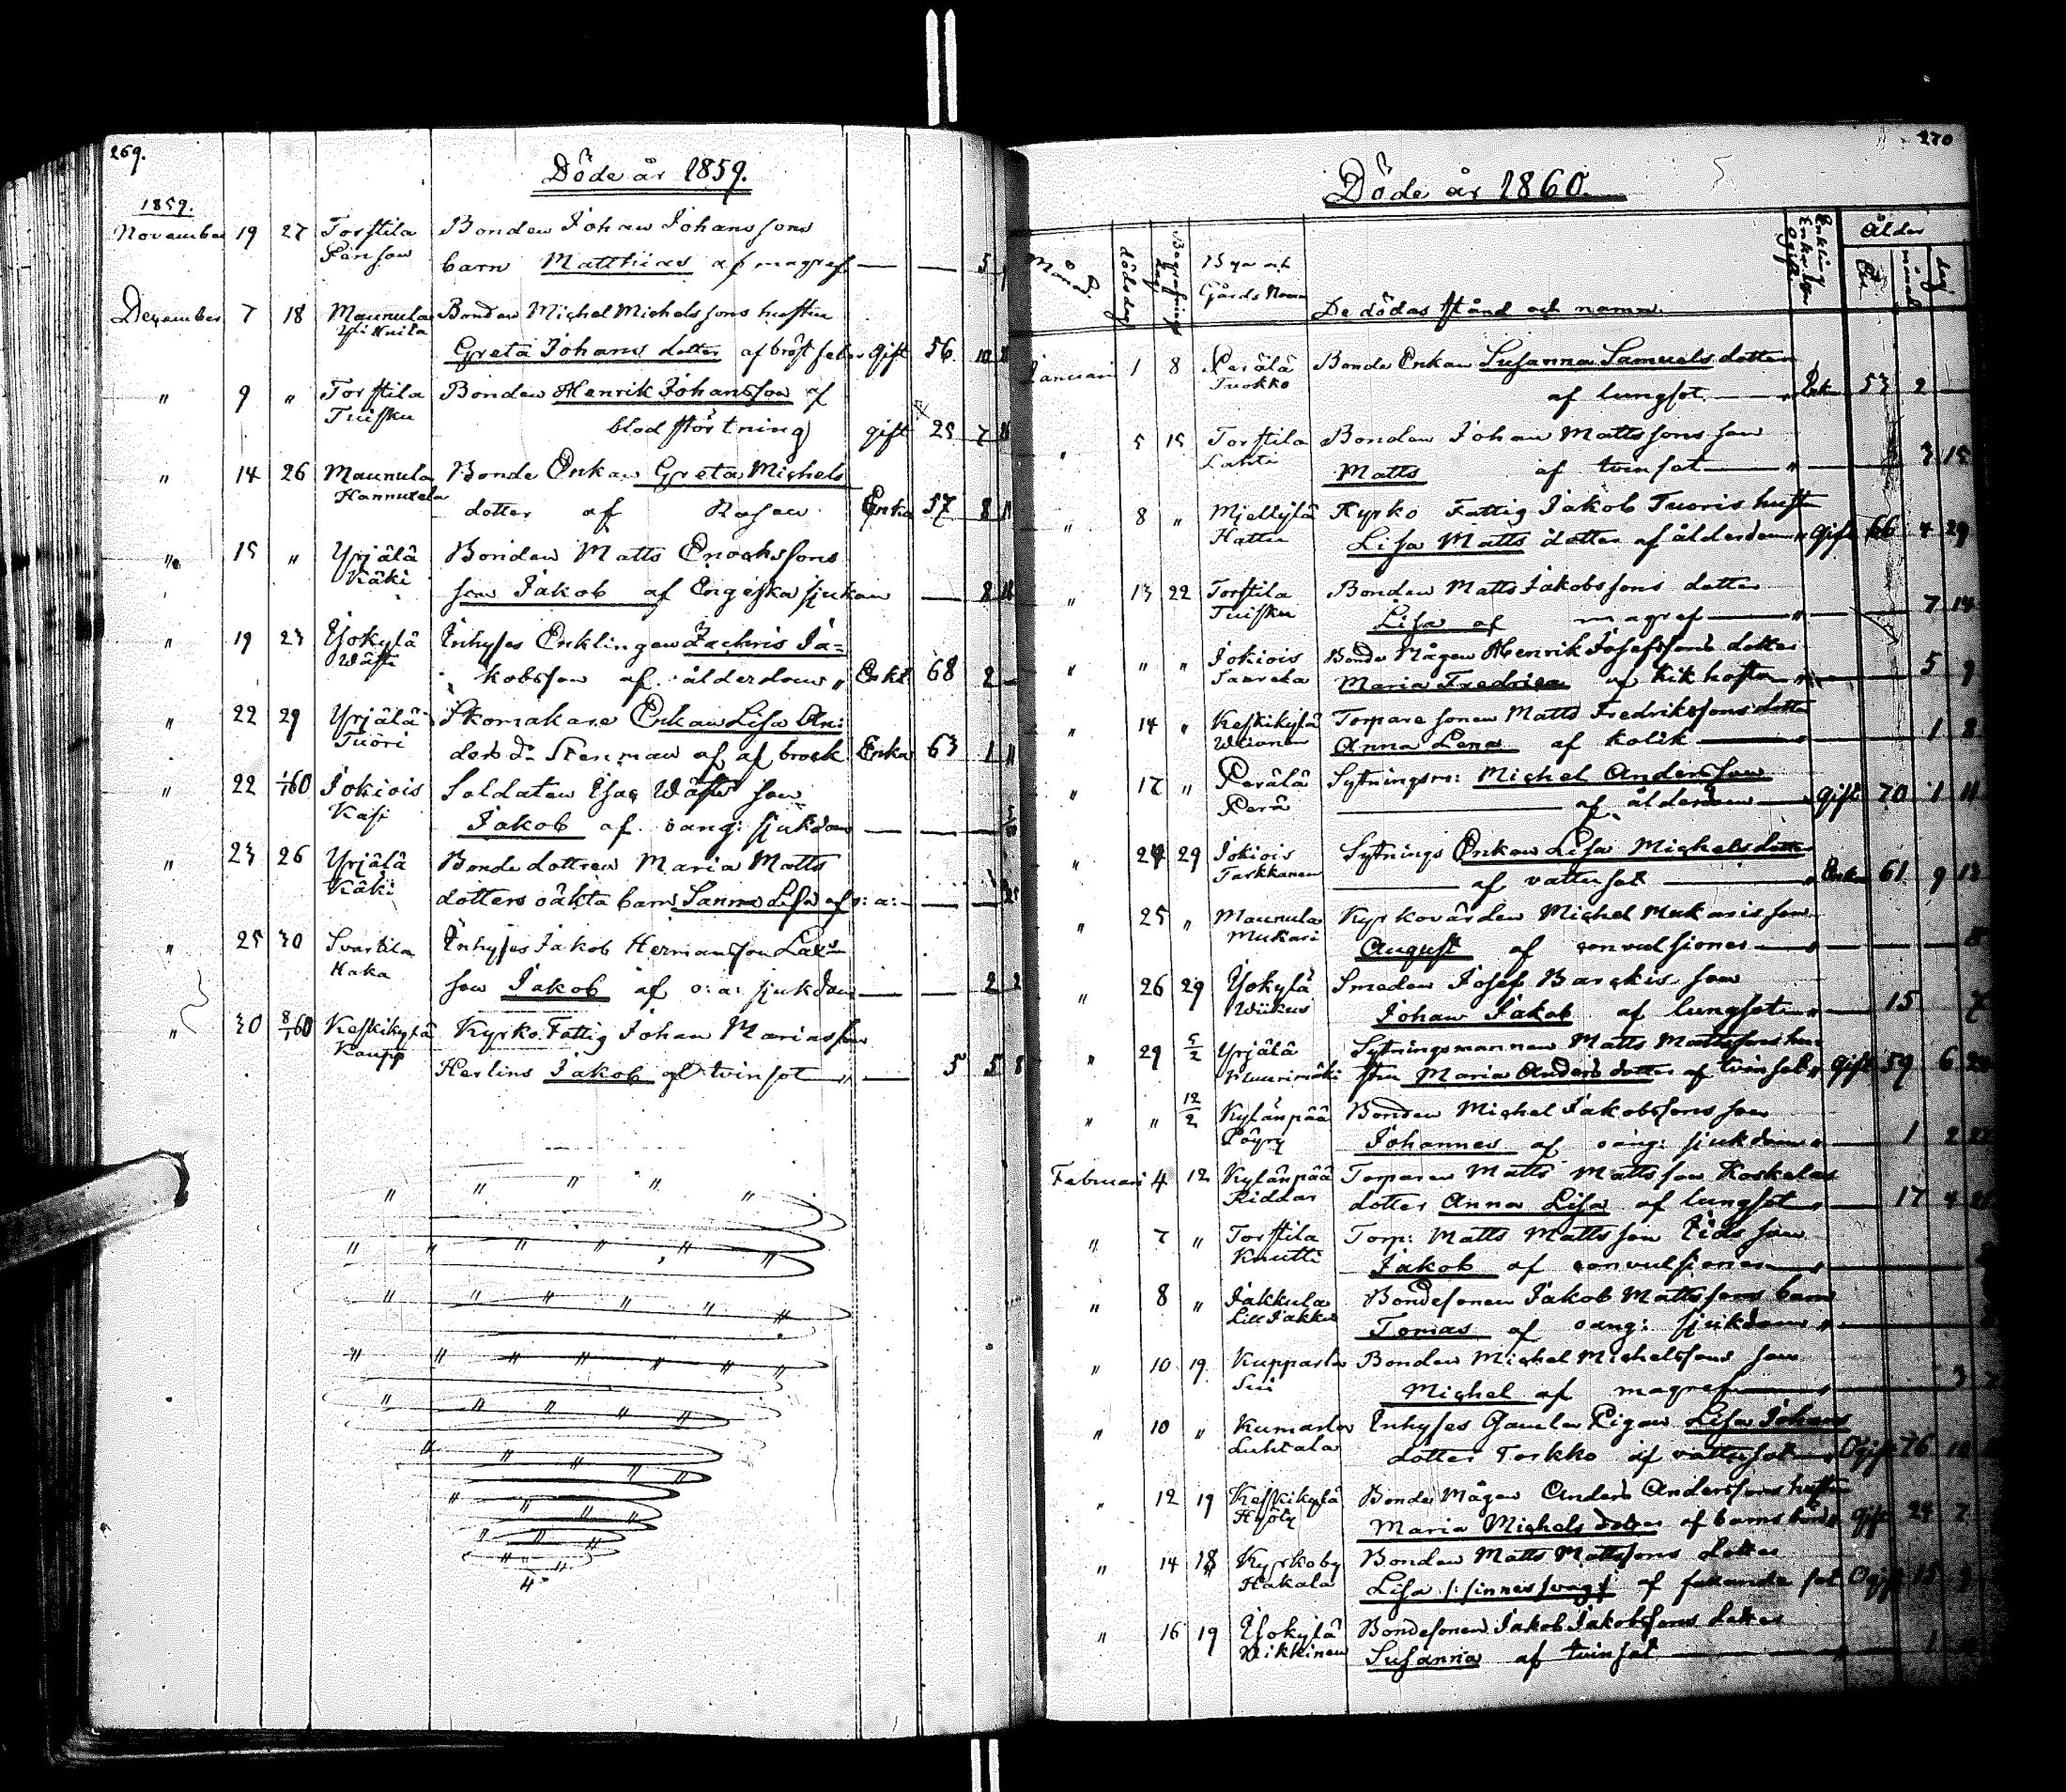 269.
Döde år 1859.
1859.
November 19 27 Torstila Bonden Johan Johanssons
barn Matthias af magref — — 5
December 7 18 Maunula Bonden Michel Michelssons hustru
Yli Knila Greta Johans dotter af bröstfeber gift 56. 10
" 9 " Torstila Bonden Henrik Johansson af
Tuisku blodstörtning gift 25 7
" 14 26 Maunula Bonde Enkan Greta Michels
Hannuxela dotter af Rosen Enka 57 8 11
" 15 " Yrjälä Bonden Matts Enochssons
Käki son Jakob af Engelska sjukan — 8
" 19 23 Ysokylä Inhyses Enklingen Zachris Ja=
Wäfti kobsson af ålderdom " Enkl 68 2 —
" 22 29 Yrjälä Skomakare Enkan Lisa An:
Tuori ders dr Stenman af af brock Enka 63 1 11
" 22 1/1 60 Jokiois Soldaten Esac Wäfts son
Kasi Jakob af oang: sjukdom — —
" 23 26 Yrjälä Bonde dottren Maria Matts
Käki dotters oäkta barn Sanna Lisa af o: a: — —
" 25 30 Svartila Inhyses Jakob Hermansson
Haka son Jakob af o: a: sjukdom — — 2 2
" 30 8/1 60 Keskikylä Kyrko Fattig Johan Mariasson
Kaupp Herlins Jakob af tvinsot — 5 5 8
270
Döde år 1860.
Månad. dödsdag Begrafnings dag Bya och Gårds Namn De dödas stånd och namn. Enkling Enka eller Ogift Ålder
År månad dag
Januari 1 8 Perälä Bonde Enkan Susanna Samuels dotter
Tuokko af lungsot — Enka 53 2 —
" 5 15 Torstila Bonden Johan Mattssons son
Lahti Matts af tvinsot — " — 3 15
" 8 " Mjellylä Kyrko Fattig Jakob Tuoris hustru
Hattu Lisa Matts dotter af ålderdom " Gift 66 4 29
" 13 22 Torstila Bonden Matts Jakobssons dotter
Tuisku Lisa af magref — " — 7 14
" " " Jokiois Bonde Mågen Henrik Josefssons dotter
Maria Fredrica af kikhosta — " — 5 9
" 14 " Keskikylä Torpare sonen Matts Fredrikssons dotter
Anna Lena af kolik — 1 8
" 17 " Perälä Sytningsm: Michel Andersson
Perä — af ålderdom — Gift 70 1 11
" 24 29 Jokiois Sytnings Enkan Lisa Michelsdotter
Tarkkanen — af vattusot — " Enka 61 9 13
" 25 " Maunula Kyrkovärden Michel Mukaris son
Mukari August af convulsioner — " —
" 26 29 Ysokylä Smeden Josef Barckis son
Wiikus Johan Jakob af lungsot — " — 15 7
" 29 5/2 Yrjälä Sytningsmannen Matts Mattssons hu
Kluurimäki stru Maria Anders dotter af tvinsot " Gift 59 6
" " 12/2 Kylänpää Bonden Michel Jakobssons son
Pöyry Johannes af oang: sjukdom " — 1 2
Februari 4 12 Kylänpää Torparen Matts Mattsson Koskelas
Riddar dotter Anna Lisa af lungsot " — 17 4
" 7 " Torstila Torp: Matts Mattsson son
Knutti Jakob af convulsioner — " —
" 8 " Jakkula Bondesonen Jakob Mattssons barn
Lill Jakku Tomas af oang: sjukdom " —
" 10 19 Kupparla Bonden Michel Michelssons son
Sui Michel af magref — " — 3
" 10 " Kumarla Inhyses Gamla Pigan Lisa Johans
Luhtala dotter Torkko af vattusot — " Ogift 76 10
" 12 19 Keskikylä Bonde Mågen Anders Anderssons hustru
Maria Michels dotter af barns börd " Gift 24 7
" 14 18 Kyrkoby Bonden Matts Mattssons dotter
Hakala Lisa /: sinnessvag :/ af fallande sot Ogift 15
" 16 19 Ysokylä Bondesonen Jakob Jakobssons dotter
Wikkinen Susanna af tvinsot — " — 1